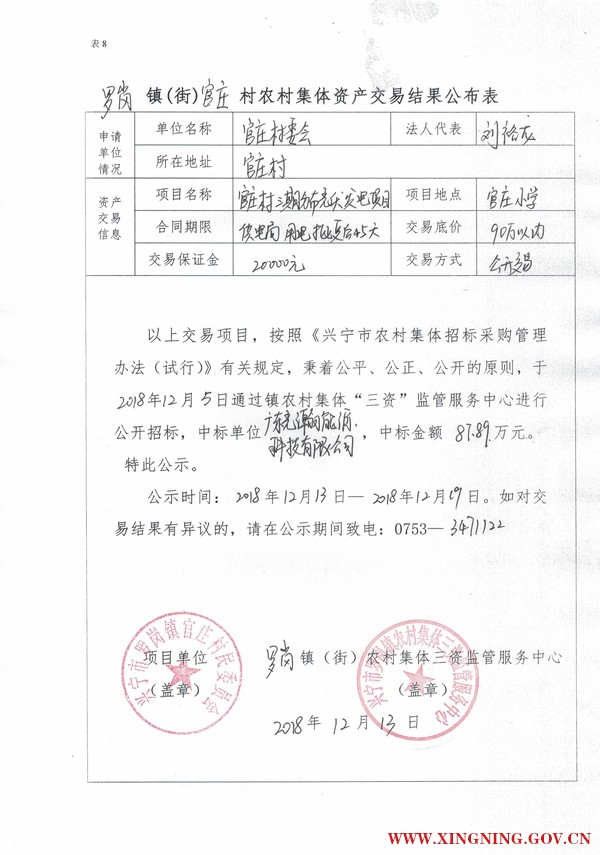 表8
罗岗 镇(街) 官庄 村农村集体资产交易结果公布表
申请单位情况 单位名称 官庄村委会 法人代表 刘裕龙
所在地址 官庄村
资产交易信息 项目名称 官庄村三期分布光伏发电项目 项目地点 官庄小学
合同期限 供电局用电批复后45天 交易底价 90万以内
交易保证金 20000元 交易方式 公开交易
以上交易项目，按照《兴宁市农村集体招标采购管理
办法（试行）》有关规定，秉着公平、公正、公开的原则，于
2018年12月5日通过镇农村集体“三资”监管服务中心进行
公开招标，中标单位广东 能源科技有限公司，中标金额 87.89 万元。
特此公示。
公示时间：2018年12月13日—2018年12月19日。如对交
易结果有异议的，请在公示期间致电：0753—3471122
项目单位 罗岗镇（街）农村集体三资监管服务中心
（盖章） （盖章）
2018年12月13日
兴宁市罗岗镇官庄村民委员会
兴宁市罗岗镇农村集体三资监管服务中心
WWW.XINGNING.GOV.CN